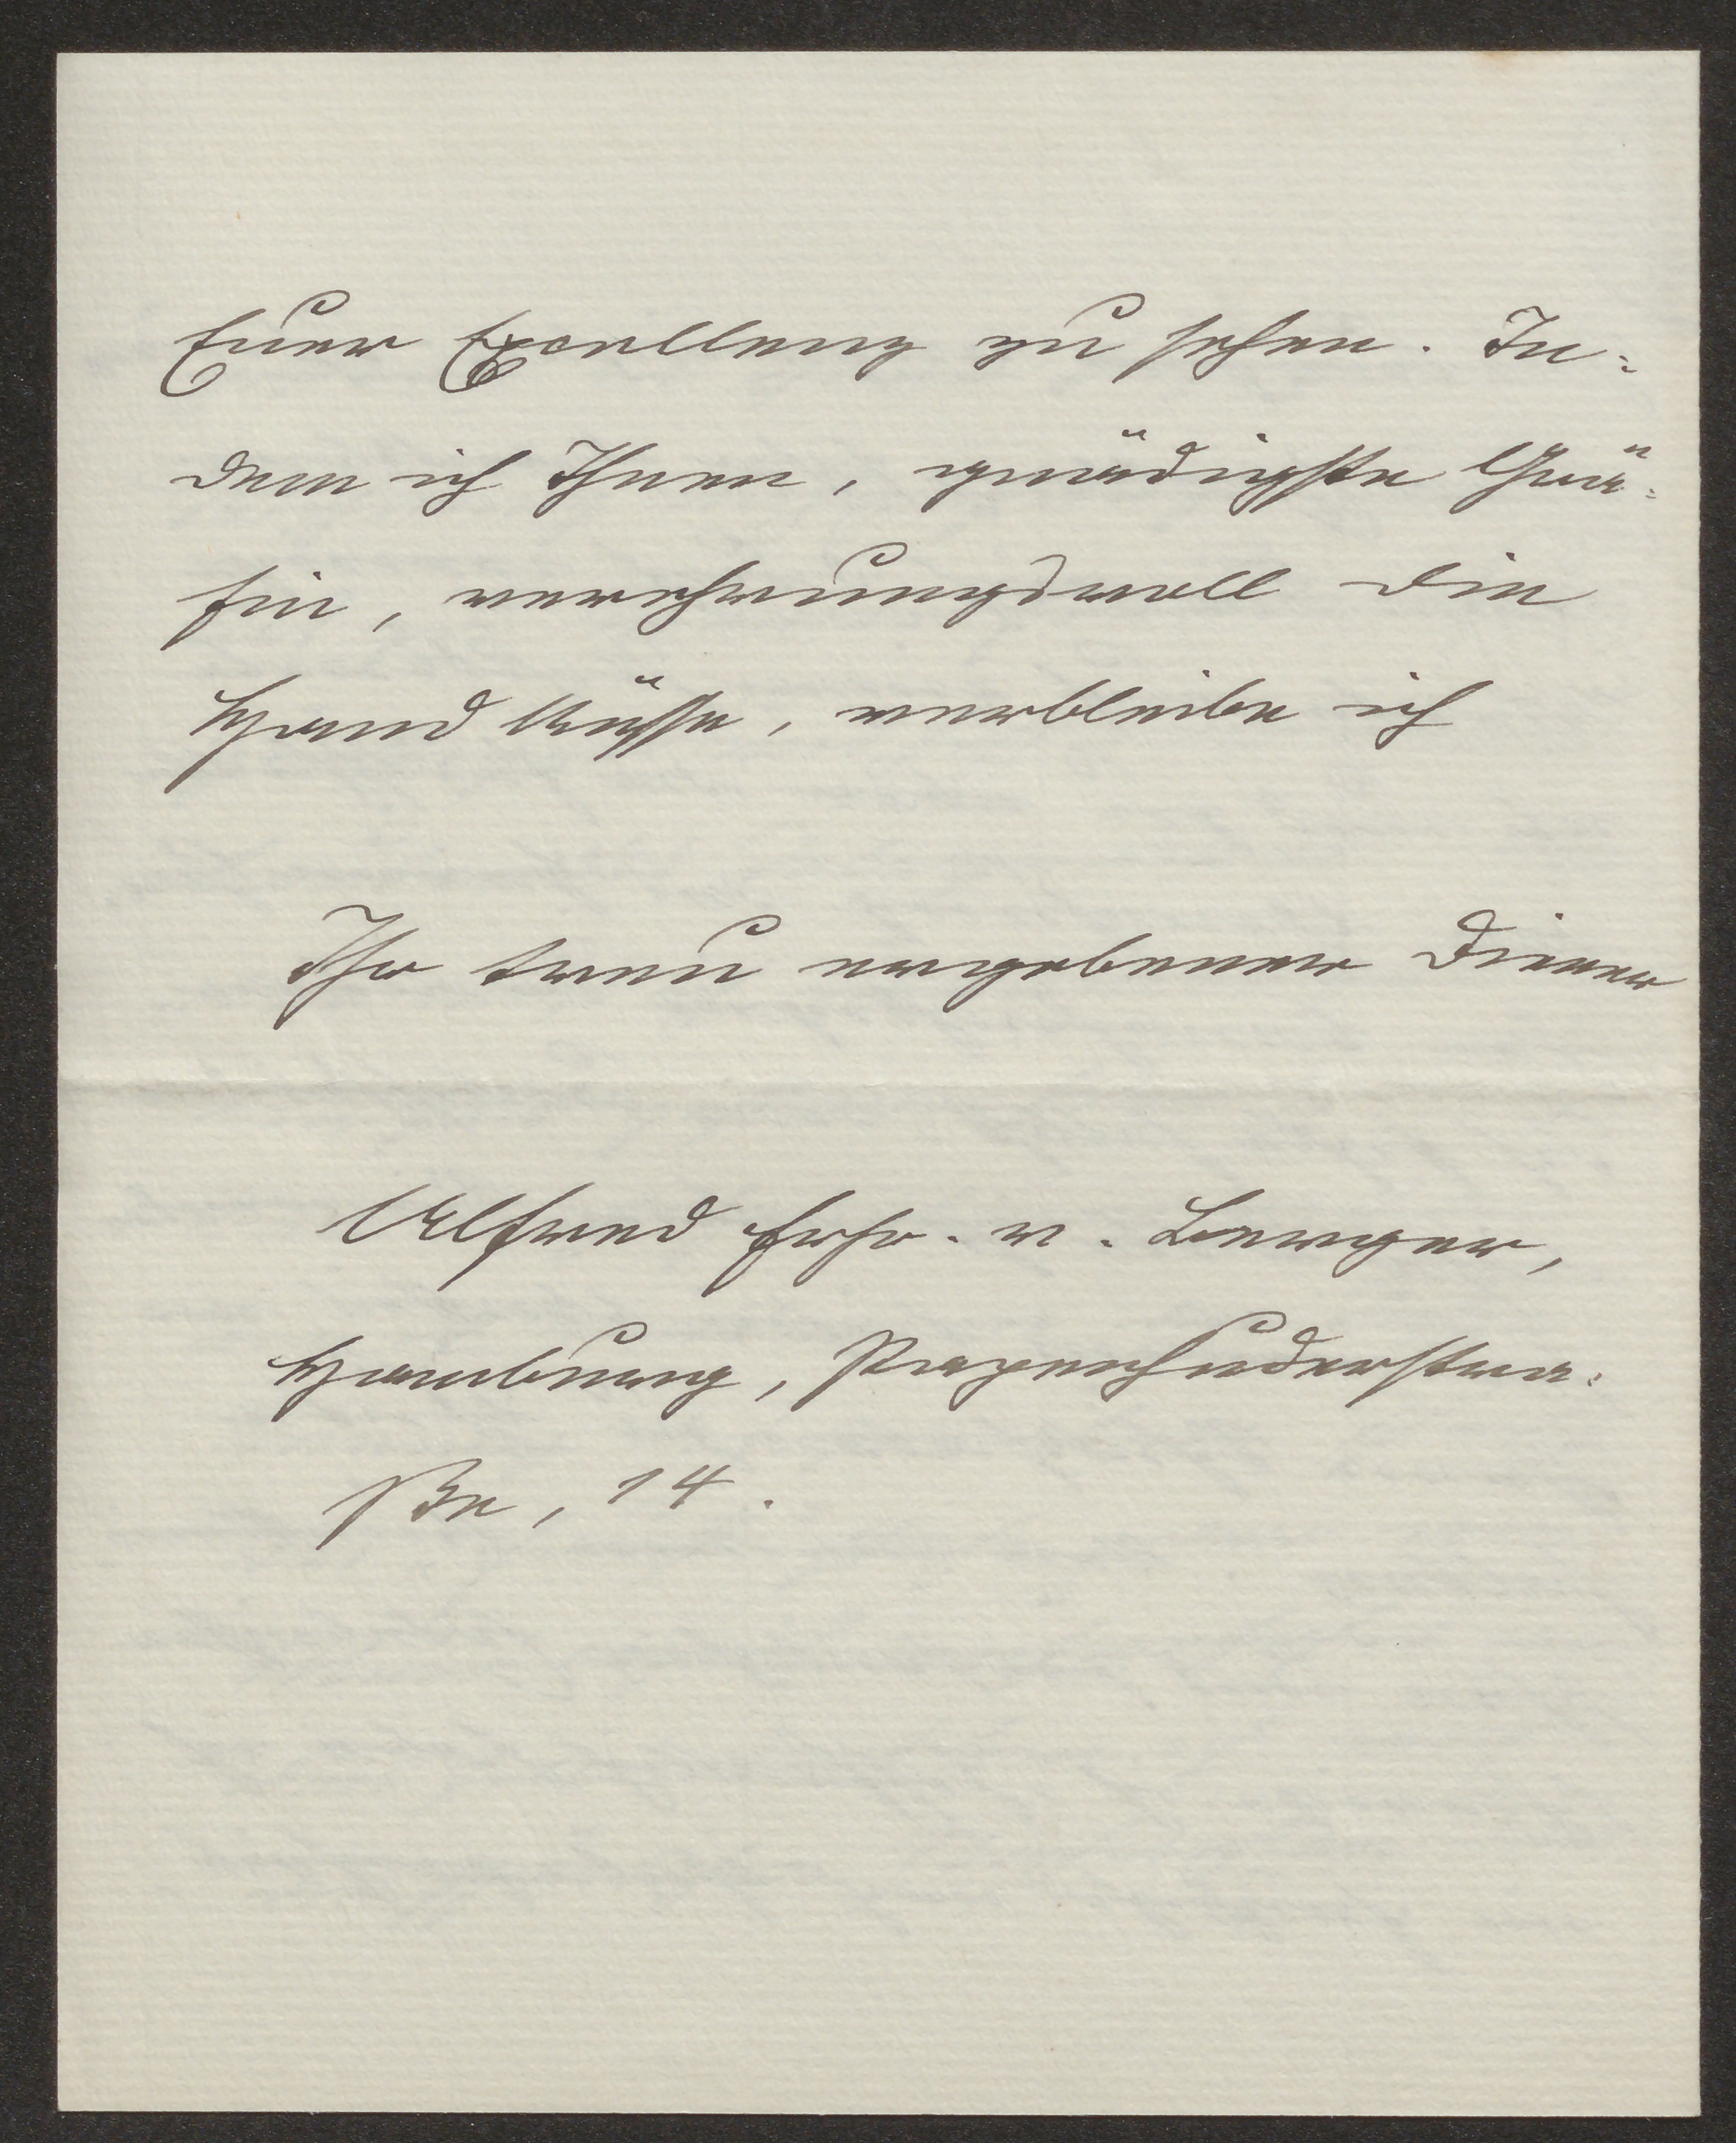 Euer Excellenz zu sehen. In-
dem ich Ihnen, gnädigste Grä-
fin, verehrungsvoll die
Hand küsse, verbleibe ich
Ihr treu ergebener Diener
Alfred Frhr. v. Berger,
Hamburg, Papenhuderstra-
ße, 14.